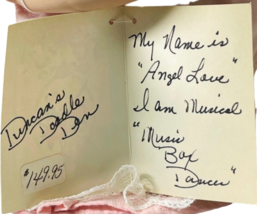 Duncan's
Doodle
Den
$149.95
My Name is
"Angel Love"
I am Musical
"Music
Box
Dancer"